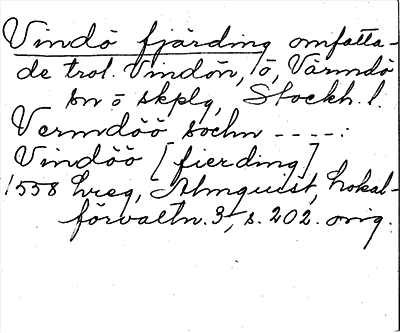 Vindö fjärding omfatta-
de trol. Vindön, ö, Värmdö
sn o skplg, Stockh. l.
Vermdöö sochn -----:
Vindöö [fierding]
1558 hreg, Almquist, Lokal-
förvaltn. 3, s. 202. orig.